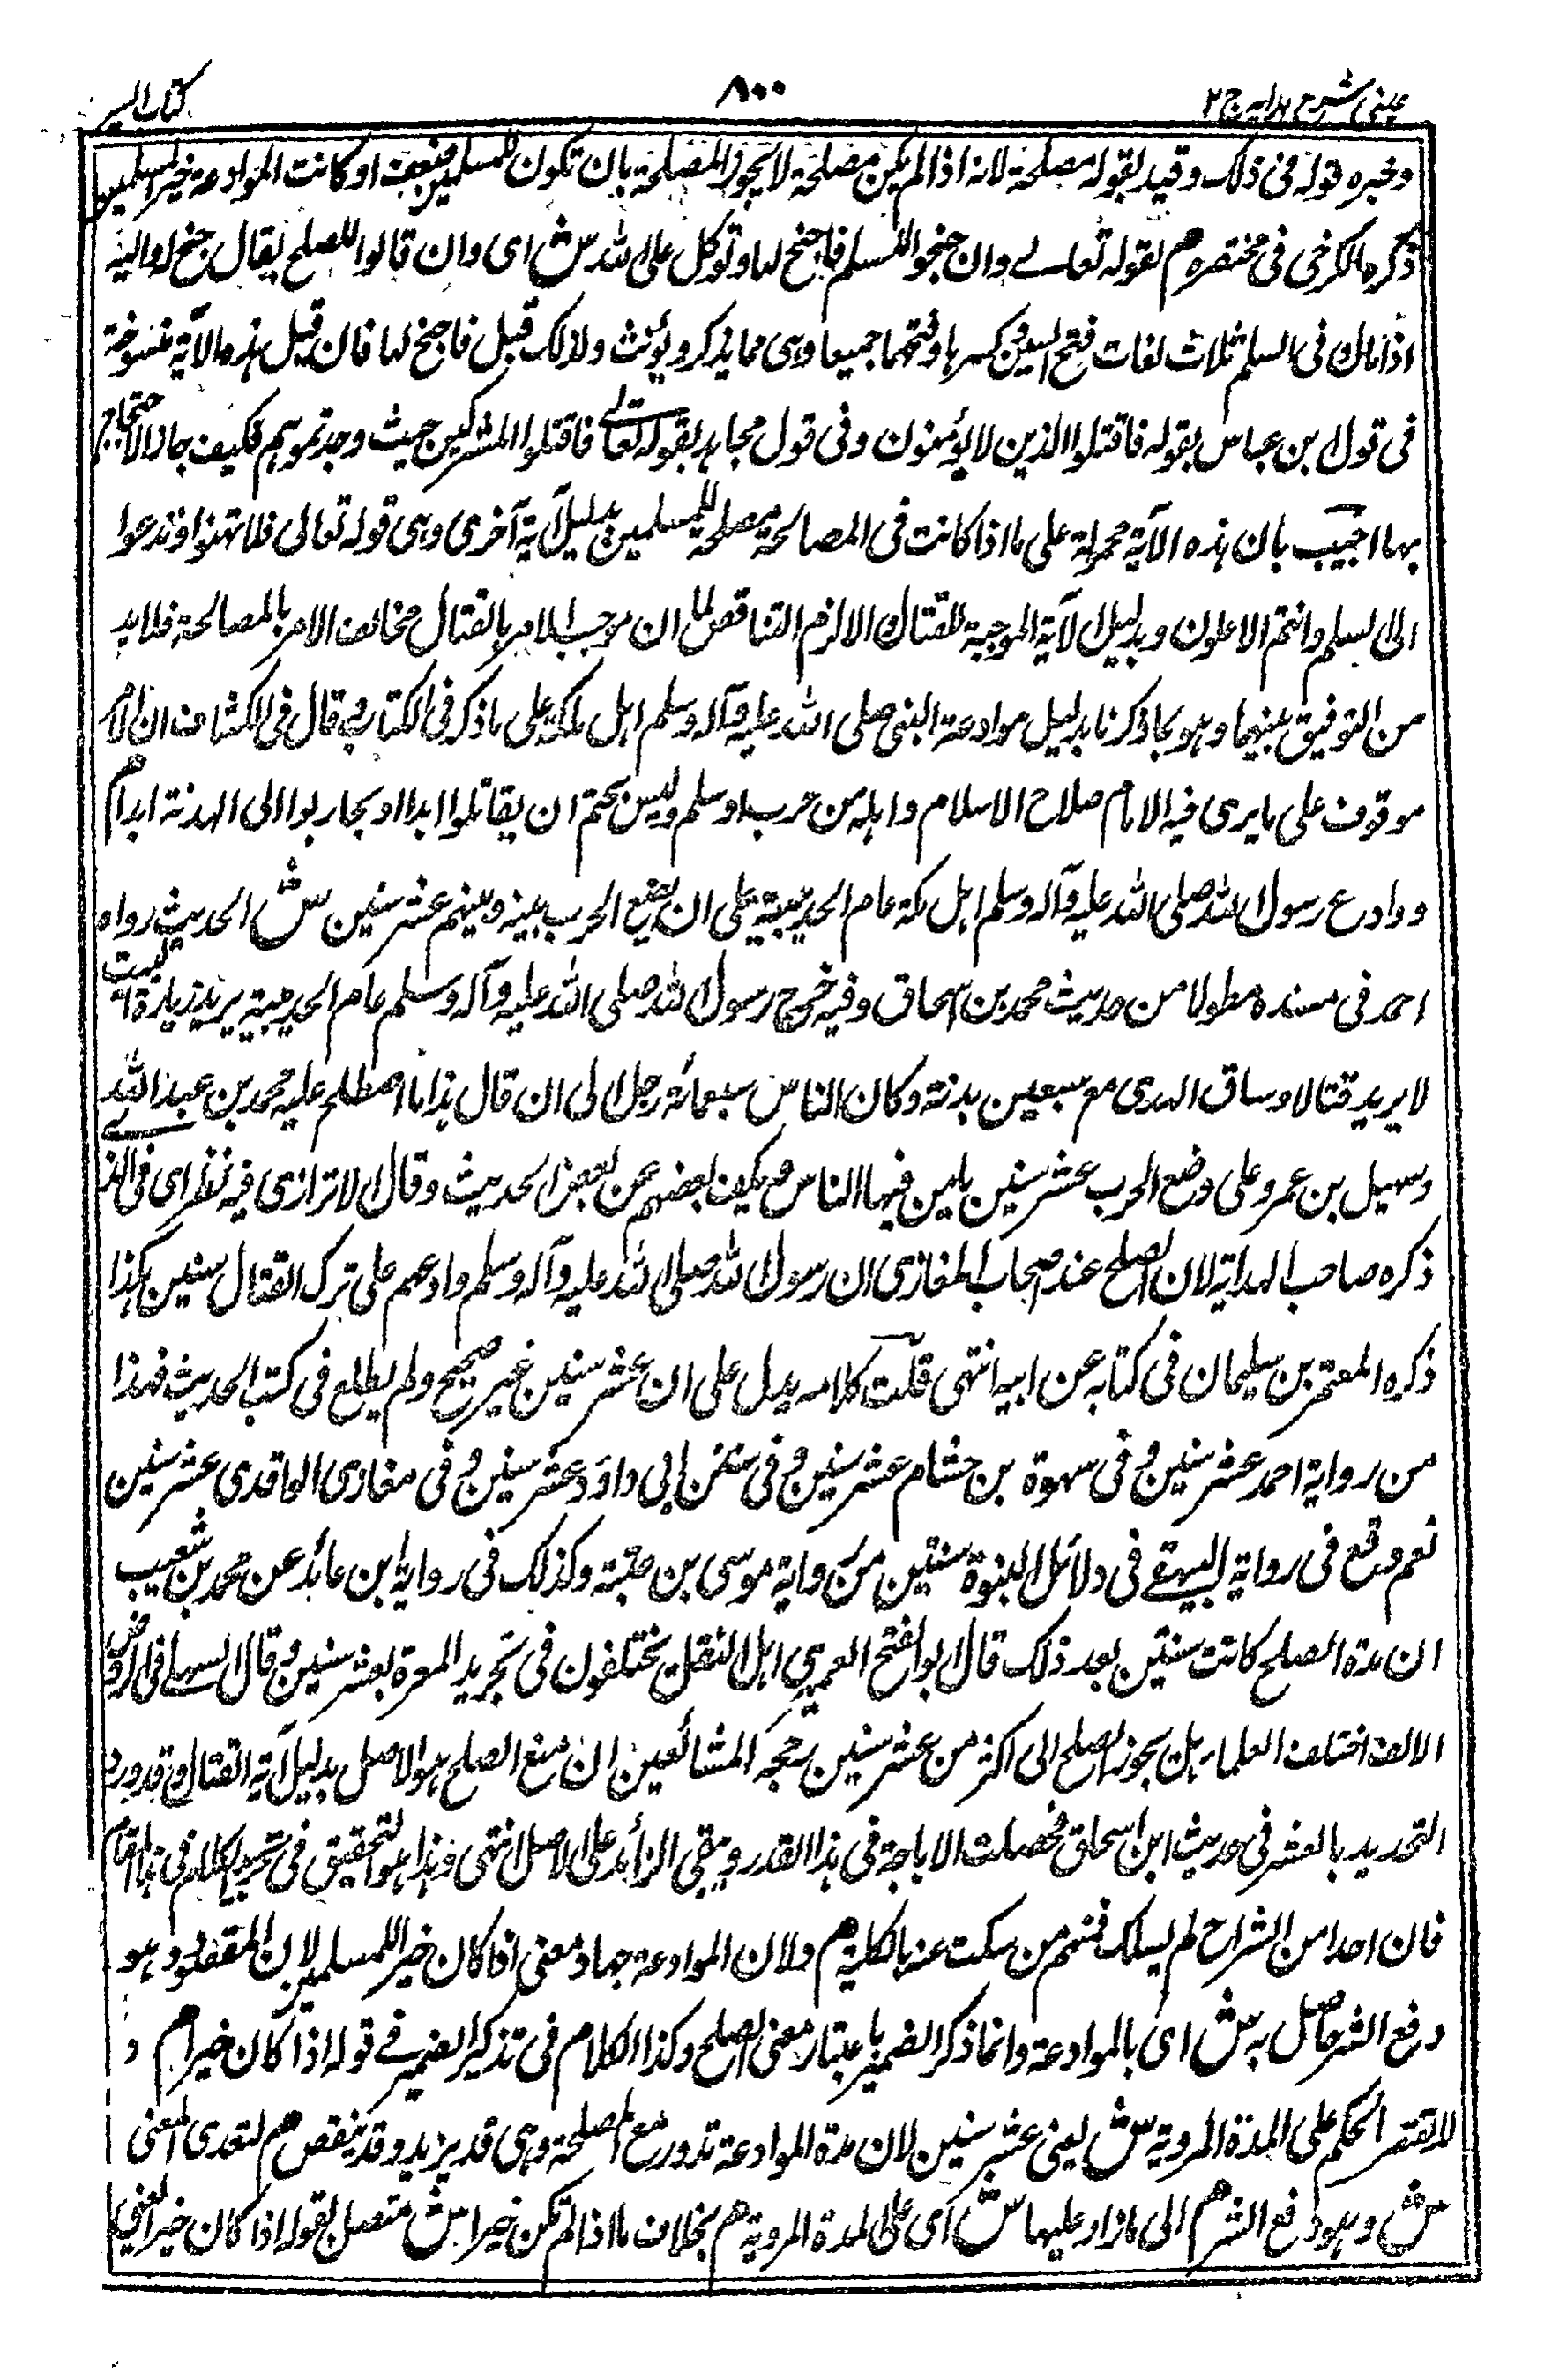 عینی شرح ہدایہ ج ۲
۸۰۰
کتاب السیر
وغیرہ قولہ فی ذلک وقید لقولہ مصلحۃ لانہ اذا لم یکن مصلحۃ لا یجوز المصلحۃ بان تکون للمسلمین ضعف او کانت الموادعۃ خیرا للمسلمین
ذکرہ الکرخی فی مختصرہ م لقولہ تعالے وان جنحوا للسلم فاجنح لہا وتوکل علی اللہ ش ای وان قالوا للصلح یقال جنح لہ والیہ
اذا مال فی السلم ثلاث لغات فتح السین وکسرہا وفتحہا جمیعا وہی مما یذکر ویؤنث ولذلک قیل فاجنح لہا فان قیل ہذہ الآیۃ منسوخۃ
فی قول ابن عباس بقولہ فاقتلوا الذین لا یؤمنون وفی قول مجاہد بقولہ تعالے فاقتلوا المشرکین حیث وجدتموہم فکیف جاز الاحتجاج
بہا اجیب بان ہذہ الآیۃ محمولۃ علی ما اذا کانت فی المصالحۃ مصلحۃ للمسلمین بدلیل آیۃ آخری وہی قولہ تعالی فلا تہنوا وتدعوا
الی السلم وانتم الاعلون وبدلیل الآیۃ الموجبۃ للقتال والا لزم التناقض لما ان موجب الامر بالقتال مخالف الامر بالمصالحۃ فلا بد
من التوفیق بینہما وہو بما ذکرنا بدلیل موادعۃ النبی صلی اللہ علیہ وآلہ وسلم اہل مکۃ علی ما ذکر فی الکتاب وقال فی الکشاف ان الامر
موقوف علی ما یری فیہ الامام صلاح الاسلام واہلہ من حرب او سلم ولیس بحتم ان یقاتلوا ابدا او یجاربوا الی الہدنۃ ابدا م
ووادع رسول اللہ صلی اللہ علیہ وآلہ وسلم اہل مکۃ عام الحدیبیۃ علی ان یضع الحرب بینہ وبینہم عشر سنین ش الحدیث رواہ
احمد فی مسندہ مطولا من حدیث محمد بن اسحاق وفیہ خرج رسول اللہ صلی اللہ علیہ وآلہ وسلم عام الحدیبیۃ یرید زیارۃ البیت
لا یرید قتالا وساق الہدی مع سبعین بدنۃ وکان الناس سبعمائۃ رجل الی ان قال ہذا ما اصطلح علیہ محمد بن عبد اللہ
وسہیل بن عمرو علی وضع الحرب عشر سنین یامن فیہا الناس ویکف بعضہم عن بعض الحدیث وقال الاترازی فیہ نظر ای فی الذی
ذکرہ صاحب الہدایۃ لان الصلح عند اصحاب المغازی ان رسول اللہ صلی اللہ علیہ وآلہ وسلم وادعہم علی ترک القتال سنین ہکذا
ذکرہ المعتمر بن سلیمان فی کتابہ عن ابیہ انتہی قلت کلامہ یدل علی ان عشر سنین غیر صحیح ولم یطلع فی کتب الحدیث فہذا
من روایۃ احمد عشر سنین وفی سہوۃ بن ہشام عشر سنین وفی سنن ابی داؤد عشر سنین وفی مغازی الواقدی عشر سنین
نعم وقع فی روایۃ البیہقے فی دلائل النبوۃ سنتین من روایۃ موسی بن عقبۃ وکذلک فی روایۃ ابن عائذ عن محمد بن شعیب
ان مدۃ الصلح کانت سنتین بعد ذلک قال ابو الفتح العمیری اہل النقل یختلفون فی تجرید المعرۃ بعشر سنین وقال السہلے فی الروض
الالف اختلف العلماء ہل یجوز الصلح الی اکثر من عشر سنین بہ حجۃ المشائعین ان منع الصلح ہو الاصل بدلیل آیۃ القتال وقد ورد
التحدید بالعشر فی حدیث ابن اسحاق فحصلت الاباحۃ فی ہذا القدر ویبقی الزائد علی الاصل انتہی وہذا ہو التحقیق فی تحریر الکلام فی ہذا المقام
فان احدا من الشراح لم یسلک فمنہم من سکت عنہ بالکلیۃ م ولان الموادعۃ جہاد معنی اذا کان خیرا للمسلمین لان المقصود وہو
دفع الشر حاصل بہ ش ای بالموادعۃ وانما ذکر الضمیر باعتبار معنی الصلح وکذا الکلام فی تذکیر الضمیر فے قولہ اذا کان خیرا م و
لا یقتصر الحکم علی المدۃ المرویۃ ش یعنی عشر سنین لان مدۃ الموادعۃ تدور مع المصلحۃ وہی قد یزید وقد ینقص م لتعدی المعنی
ش وہو دفع الشر م الی ما زاد علیہا ش ای علی المدۃ المرویۃ م بخلاف ما اذا لم تکن خیرا ش متصل بقولہ اذا کان خیرا یعنی